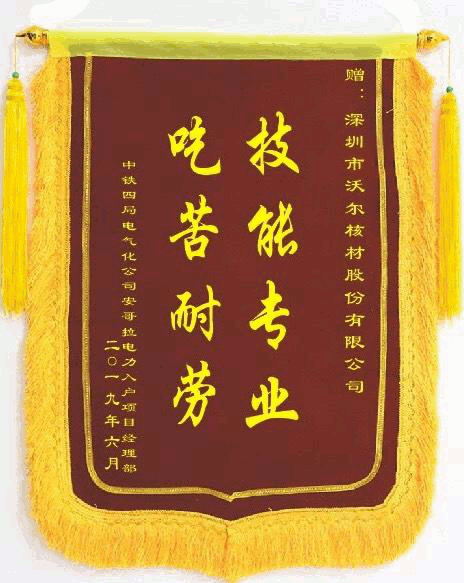 赠：深圳市沃尔核材股份有限公司
技能专业
吃苦耐劳
中铁四局电气化公司安哥拉电力入户项目经理部
二〇一九年六月